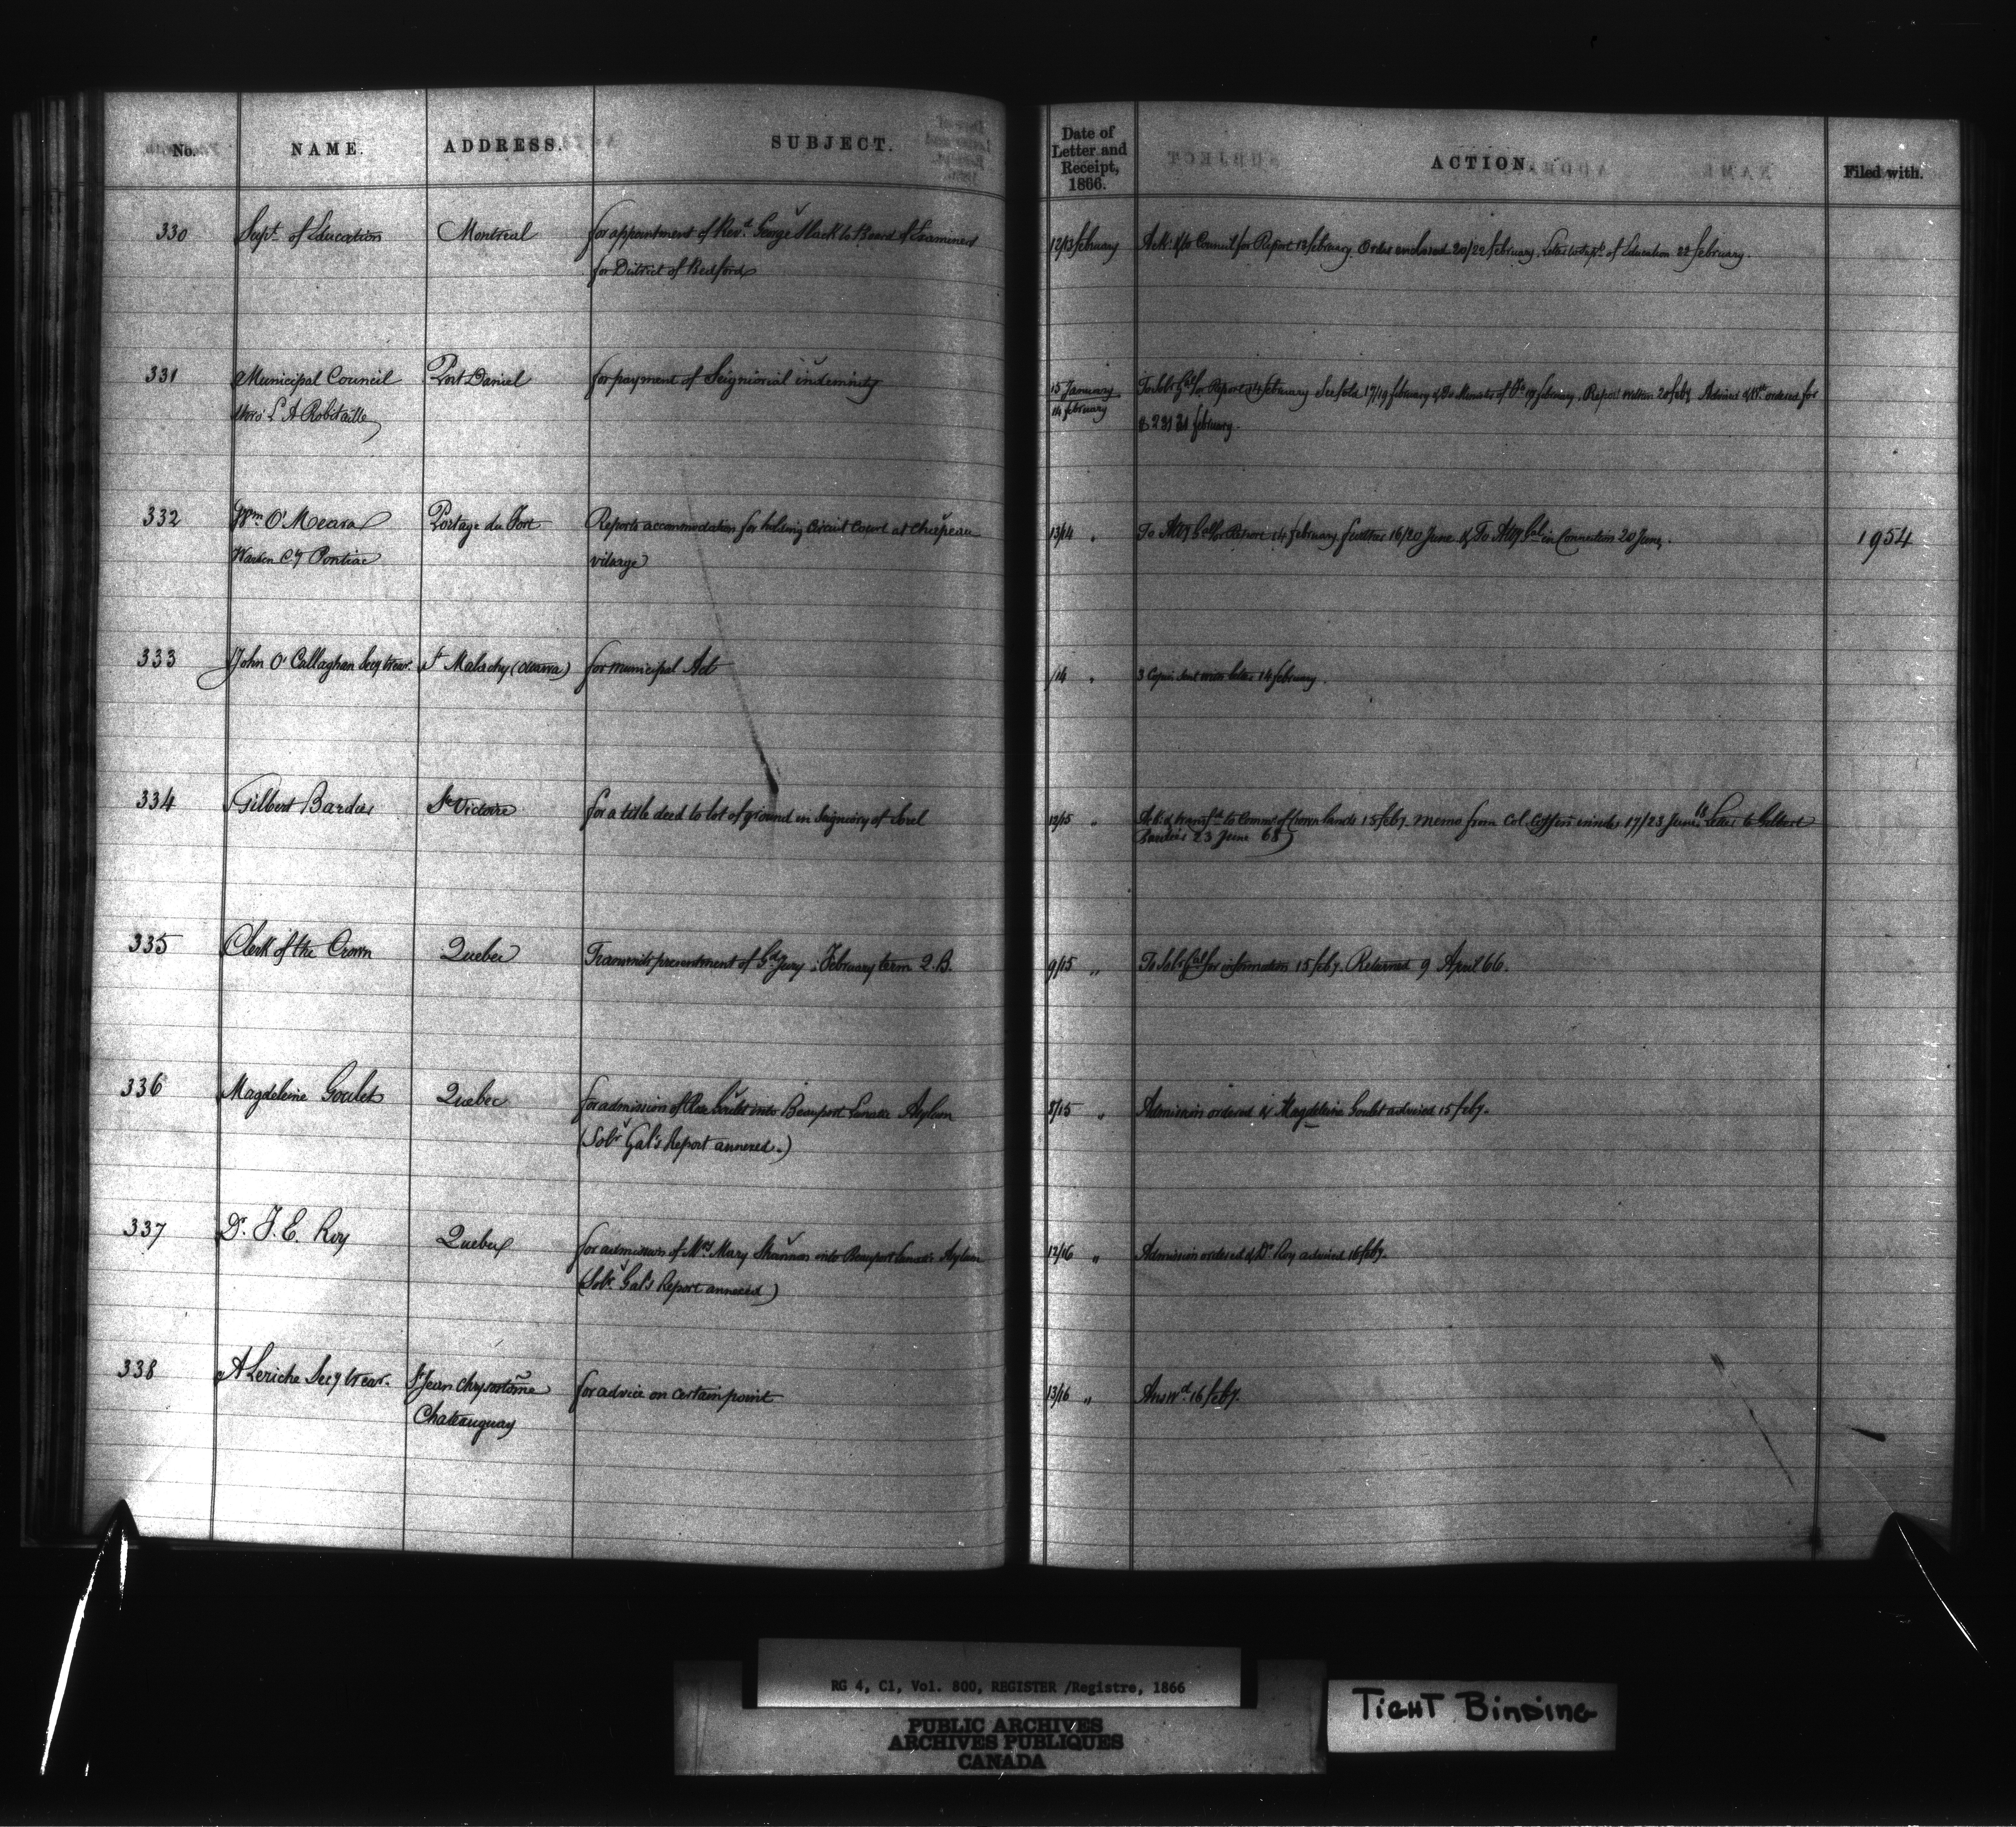 No. NAME. ADDRESS. SUBJECT. Date of Letter and Receipt, 1866. ACTION. Filed with.
330 Supt. of Education Montreal for appointment of Revd. George Slack to Board of Examiners 12/13 february Ack: & to Council for Report 13 february. Order enclosed 20/22 february. Letter to Supt. of Education 22 february.
for District of Bedford
331 Municipal Council Port Daniel for payment of Seigniorial indemnity 15 January To Solr Gal for Report 14 february See fold 17/19 february & To Minister of 19 february. Report written 20 feby. Advised & Wt. ordered for
Moss: L A Robitaille 14 february february.
332 Wm O'Meara Portage du Fort Reports accommodation for holding Circuit Court at Chapeau 13/14 " To Atty Gal for Report 14 february further 16/20 June & To Atty Gal in Connection 20 June. 1954
Warden Cy Pontiac village
333 John O'Callaghan Secy trear. St Malachy (Ottawa) for municipal Act /14 " 3 Copies sent with letter 14 february.
334 Gilbert Bardies Ste Victoire for a title deed to lot of ground in Seigniory of Sorel 12/15 " Ack: & transfd. to Commr of Crown lands 15 feby. memo from Col. Coffin 17/23 June 68 Letter to Gilbert
Bardies 23 June 68
335 Clerk of the Crown Quebec Transmits presentment of Gd Jury: February term Q.B. 9/15 " To Solr Gal for information 15 feby. Returned 9 April 66.
336 Magdeleine Goulet Quebec for admission of Rose Goulet into Beauport Lunatic Asylum 8/15 " Admission ordered & Magdeleine Goulet advised 15 feby.
(Solr Gal's Report annexed.)
337 Dr. F. E. Roy Quebec for admission of Mrs Mary Shannon into Beauport Lunatic Asylum 12/16 " Admission ordered & Dr Roy advised 16 feby.
(Solr. Gal's Report annexed)
338 A Leriche Secy trear. St Jean Chrysostôme for advice on certain point 13/16 " Answd. 16 feby.
Chateauguay
RG 4, C1, Vol. 800, REGISTER /Registre, 1866
PUBLIC ARCHIVES
ARCHIVES PUBLIQUES
CANADA
TIGHT BINDING